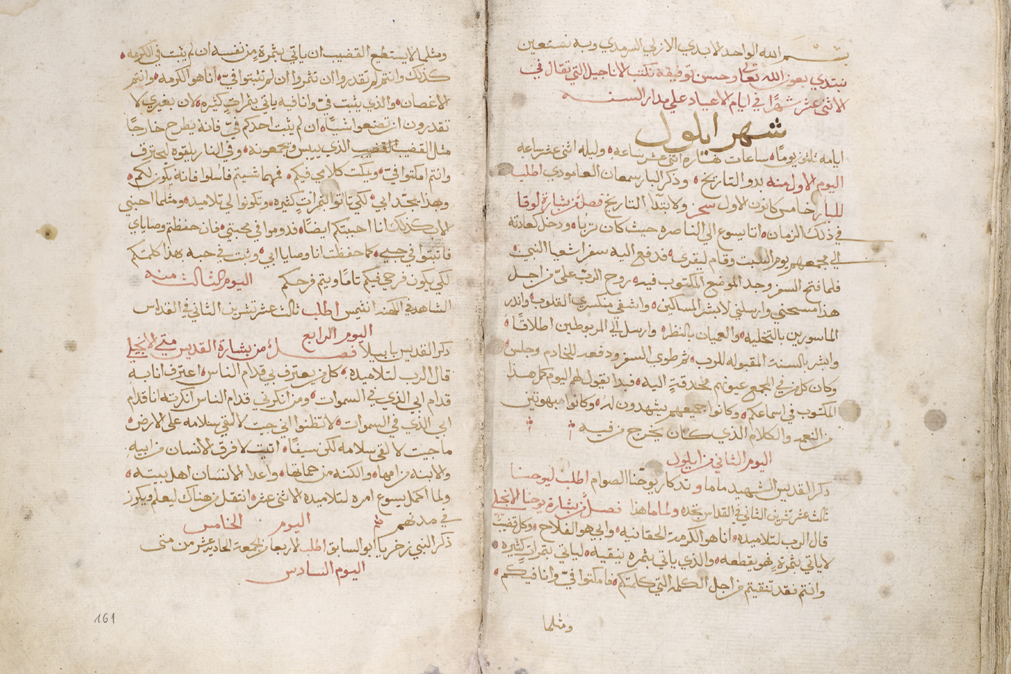 بسم الله الواحد الابدي الازلي السرمدي وبه نستعين
نبتدي بعون الله تعا وحسن توفيقه نكتب الاناجيل التي تقال في
الاثنى عشر شهرًا في ايام الاعياد على مدار السنه
شهر ايلول
ايامه ثلثون يومًا ساعات نهاره اثنى عشر ساعه وليله اثنى عشر ساعه
اليوم الاول منه بدو التاريخ وذكر البار سمعان العامودي اطلب
للبار خامس كانون الاول سحر ولابتدا التاريخ فصل من بشارة لوقا
في ذلك الزمان اتا يسوع الى الناصره حيث كان تربا ودخل كعادته
الى مجمعهم يوم السبت وقام ليقرى فدفع اليه سفر اشعيا النبي
فلما فتح السفر وجد الموضع المكتوب فيه روح الرب علي من اجل
هذا مسحني وارسلني لابشر المساكين واشفي منكسري القلوب وانذر
الماسورين بالتخليه والعميان بالنظر وارسل المربوطين اطلاقًا
وابشر بالسنة المقبوله للرب ثم طوى السفر ودفعه للخادم وجلس
وكان كل من في المجمع عيونهم محدقة اليه فبدا يقول لهم اليوم كمل هذا
المكتوب في اسماعكم وكانوا جميعهم يشهدون له وكانوا يبهتون
من النعمه والكلام الذي كان يخرج من فيه
اليوم الثاني من ايلول
ذكر القديس الشهيد ماما وتدكار يوحنا الصوام اطلب ليوحنا
ثالث عشر تشرين الثاني في القداس تجده ولماما هذا فصل من بشارة يوحنا الانجيلي
قال الرب لتلاميذه انا هو الكرمة الحقانيه وابي هو الفلاح وكل قضيب
لاياتي بثمرة فهو يقطعه والذي ياتي بثمره ينقيه لياتي بثمرات كثيره
وانتم فقد تنقيتم من اجل الكلمة التي كلمتكم فامكثوا في وانا فيكم
ومثلما
ومثلما لايستطيع القضيب ان ياتي بثمرة من نفسه ان لم يثبت في الكرمه
كذلك وانتم لم تقدروا ان تثمروا ان لم تثبتوا في انا هو الكرمه وانتم
الاغصان والذي يثبت في وانا فيه ياتي بثمرات كثيره لان بغيري لا
تقدرون ان تصنعوا شيًا ان لم يثبت احدكم في فانه يطرح خارجًا
مثل القضيب الذي ييبس ويجمعونه وفي النار يلقوه ليحترق
وانتم امكثوا في ويمكث كلامي فيكم فمهما شيتم فاسلوا فانه يكون لكم
وبهذا يمجد ابي لكي تاتوا الثمرات كثيره وتكونوا لي تلاميذ ومثلما احبني
الاب كذلك انا احببتكم ايضًا فدوموا في محبتي فان حفظتم وصاياي
فاثبتوا في حبي كما حفظت انا وصايا ابي وثبت في حبه هذا كلمتكم
لكي يكون فرحي فيكم تامًا ويتم فرحكم اليوم الثالث منه
الشاهد في الكهنه انثيمس اطلب ثالث عشر تشرين الثاني في القداس
اليوم الرابع
ذكر القديس بابيلا فصل من بشارة القديس متى الانجيلي
قال الرب لتلاميذه كل من يعترف بي قدام الناس اعترف انا به
قدام ابي الذي في السموات ومن انكرني قدام الناس انكرته انا قدام
ابي الذي في السموات لاتظنوا اني جيت لالقي سلامه على الارض
ماجيت لالقي سلامه لكن سيفًا اتيت لافرق الانسان من ابيه
والابنه من امها والكنه من حماتها واعدا الانسان اهل بيته
ولما اكمل يسوع امره لتلاميذه الاثنى عشر انتقل من هناك ليعلم ويكرز
في مدنهم اليوم الخامس
ذكر النبي زخريا ابو السابق اطلب لاربعا من الجمعة الحاديه عشر من متى
اليوم السادس
161